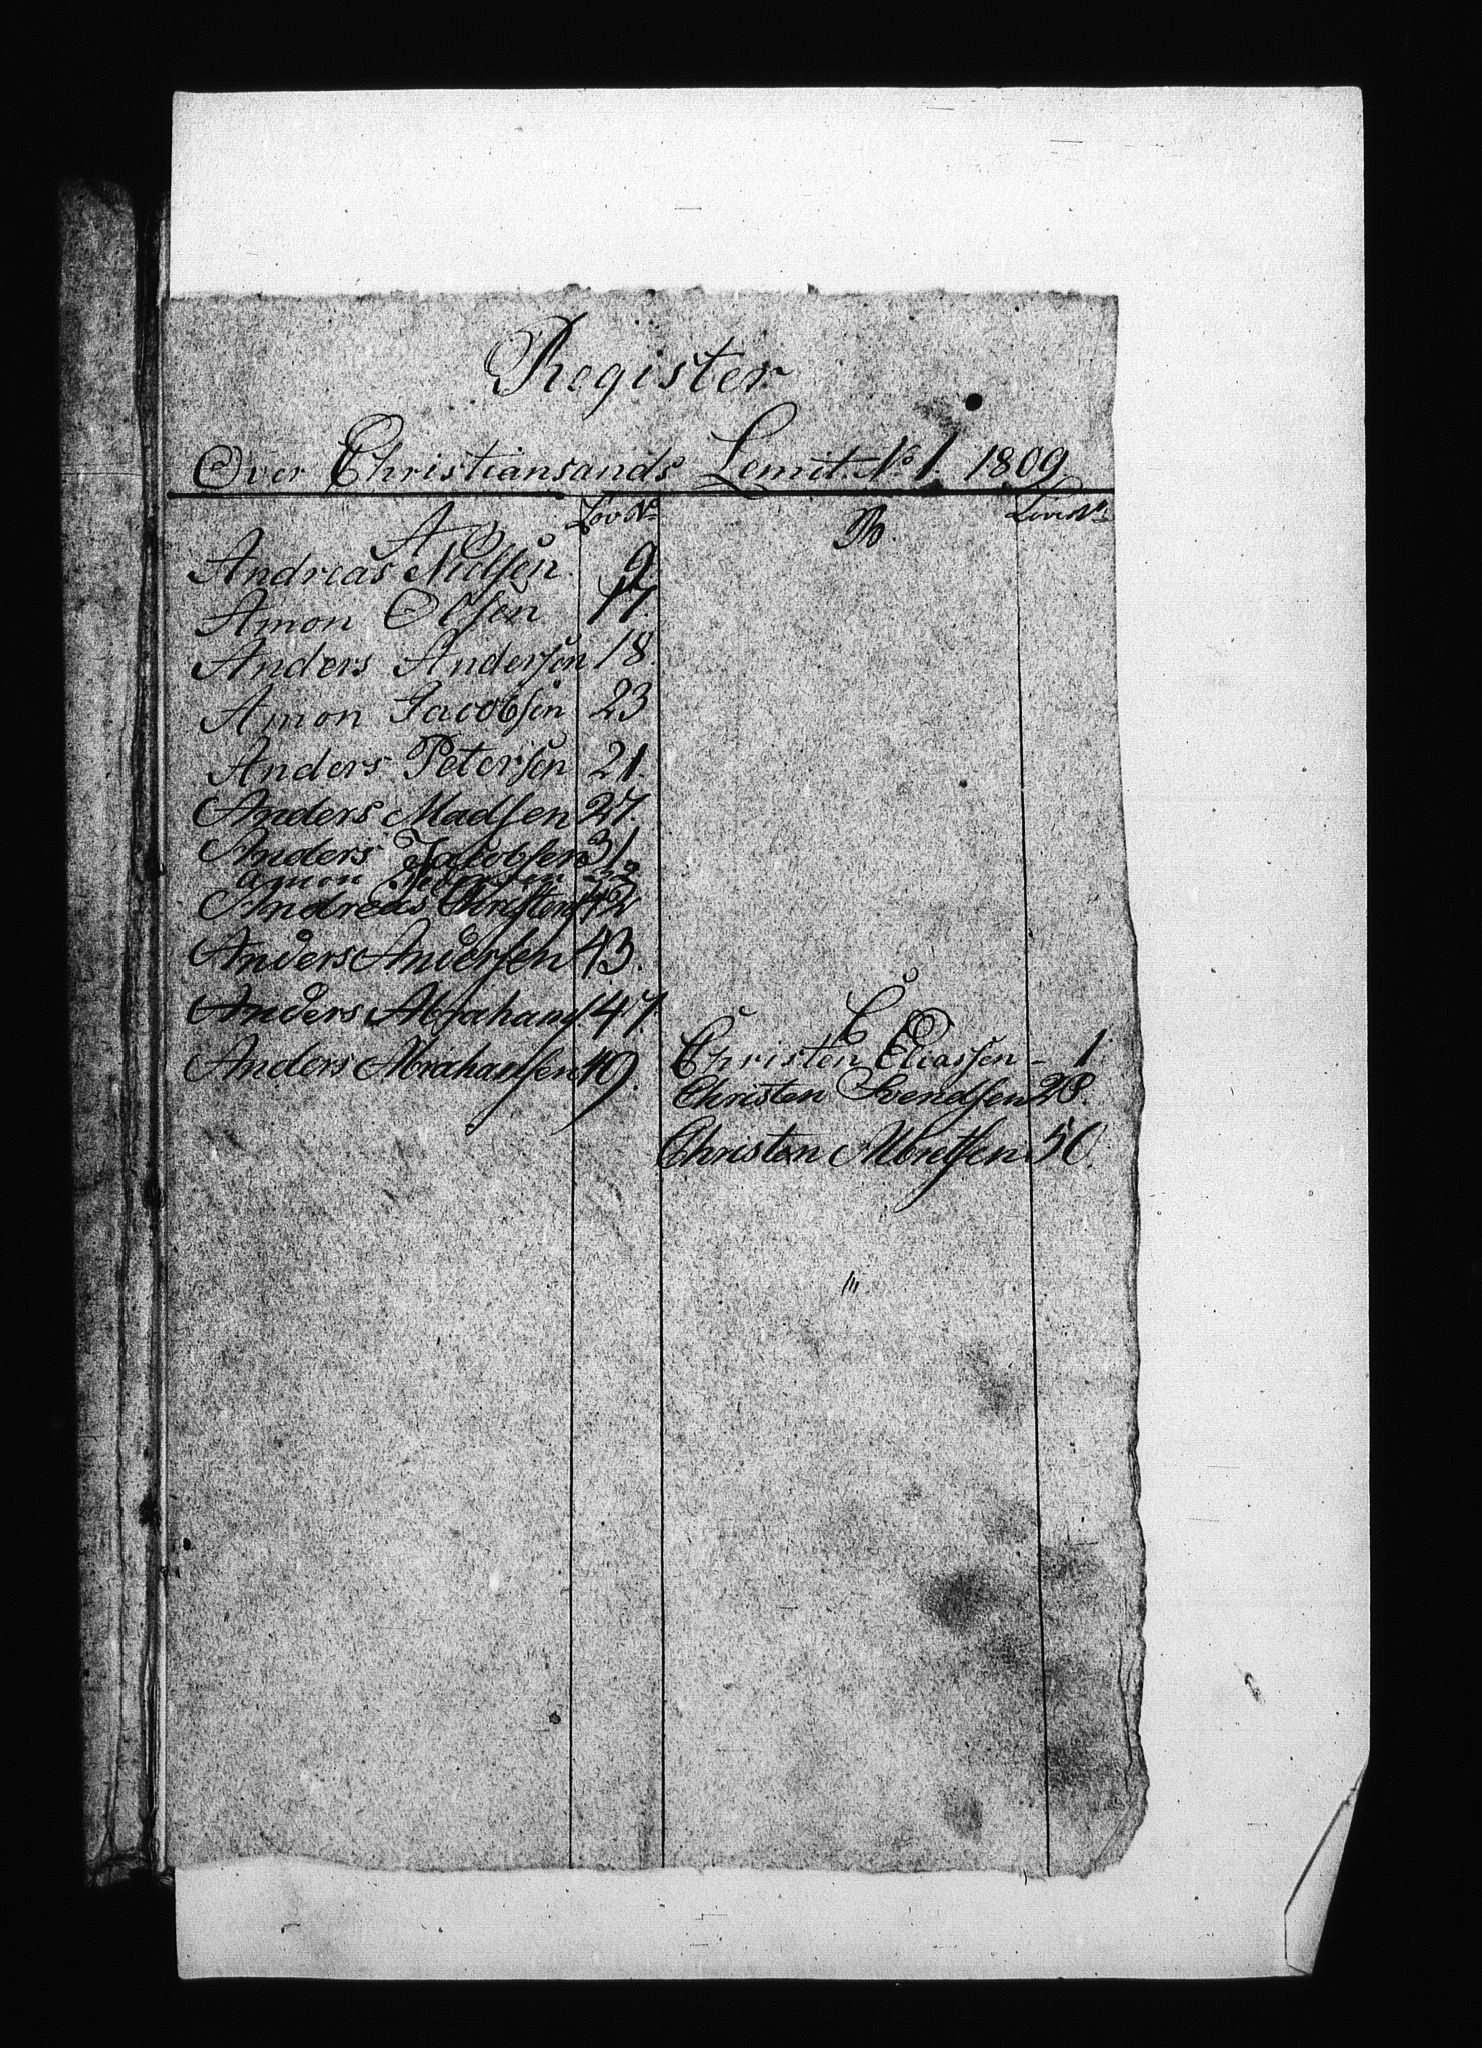 Register
Over Christiansands Lemit. No 1. 1809
A Lov No
Andreas Nielsen. 9
Amon Olsen 17.
Anders Andersen 18.
Amon Jacobsen 23
Anders Petersen 21.
Anders Madsen 27.
Anders Jacobsen 31
Amon
Andreas Christens 42
Anders Andersen 43.
Anders Abrahams. 47
Anders Abrahamsen 49.
B. Love No
C
Christen Eliassen - 1.
Christen Svendsen 28.
Christen Albretsen 50.